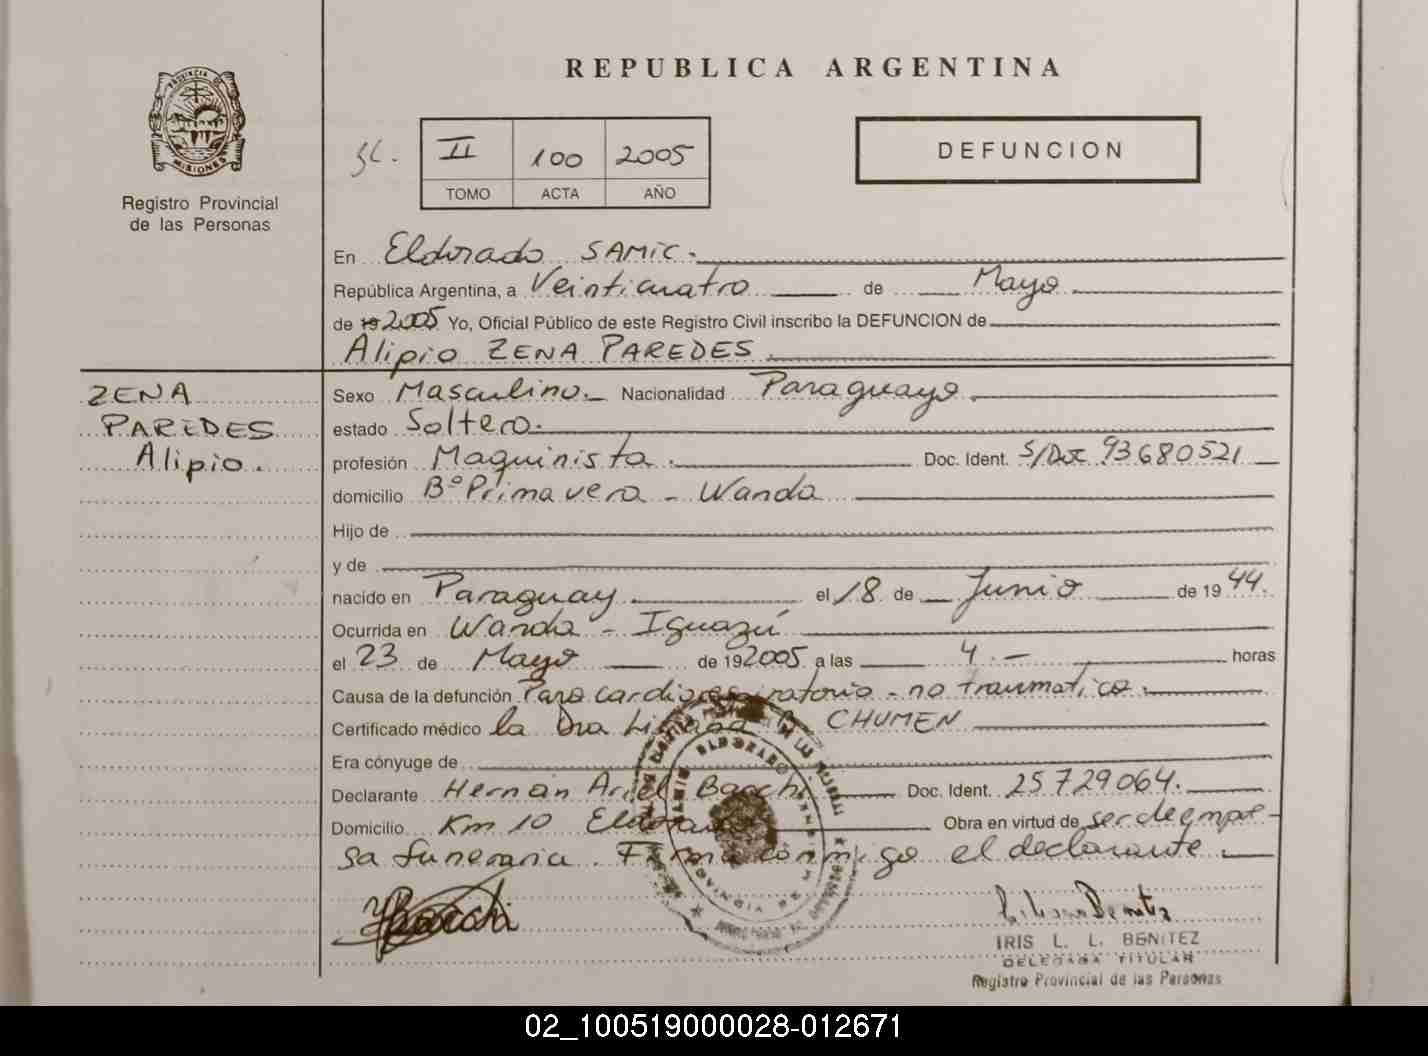 REPUBLICA ARGENTINA
PROVINCIA DE MISIONES
Registro Provincial
de las Personas
II 100 2005
TOMO ACTA AÑO
DEFUNCION
En Eldorado SAMIC.
República Argentina, a Veinticuatro de Mayo
de 19 2005 Yo, Oficial Público de este Registro Civil inscribo la DEFUNCION de
Alipio ZENA PAREDES
ZENA
PAREDES
Alipio.
Sexo Masculino. Nacionalidad Paraguayo.
estado Soltero.
profesión Maquinista. Doc. Ident. S/Doc 93680521
domicilio Bº Primavera - Wanda
Hijo de
y de
nacido en Paraguay el 18 de Junio de 1944.
Ocurrida en Wanda - Iguazú
el 23 de Mayo de 192005 a las 4.- horas
Causa de la defunción Paro cardiorespiratorio - no traumatico.
Certificado médico la Dra CHUMEN
Era cónyuge de
Declarante Hernán Ariel Bacchi Doc. Ident. 25729064.
Domicilio Km 10 Eldorado Obra en virtud de ser de empre-
sa funeraria. Firma conmigo el declarante.
IRIS L. L. BENITEZ
DELEGADA TITULAR
Registro Provincial de las Personas
02_100519000028-012671